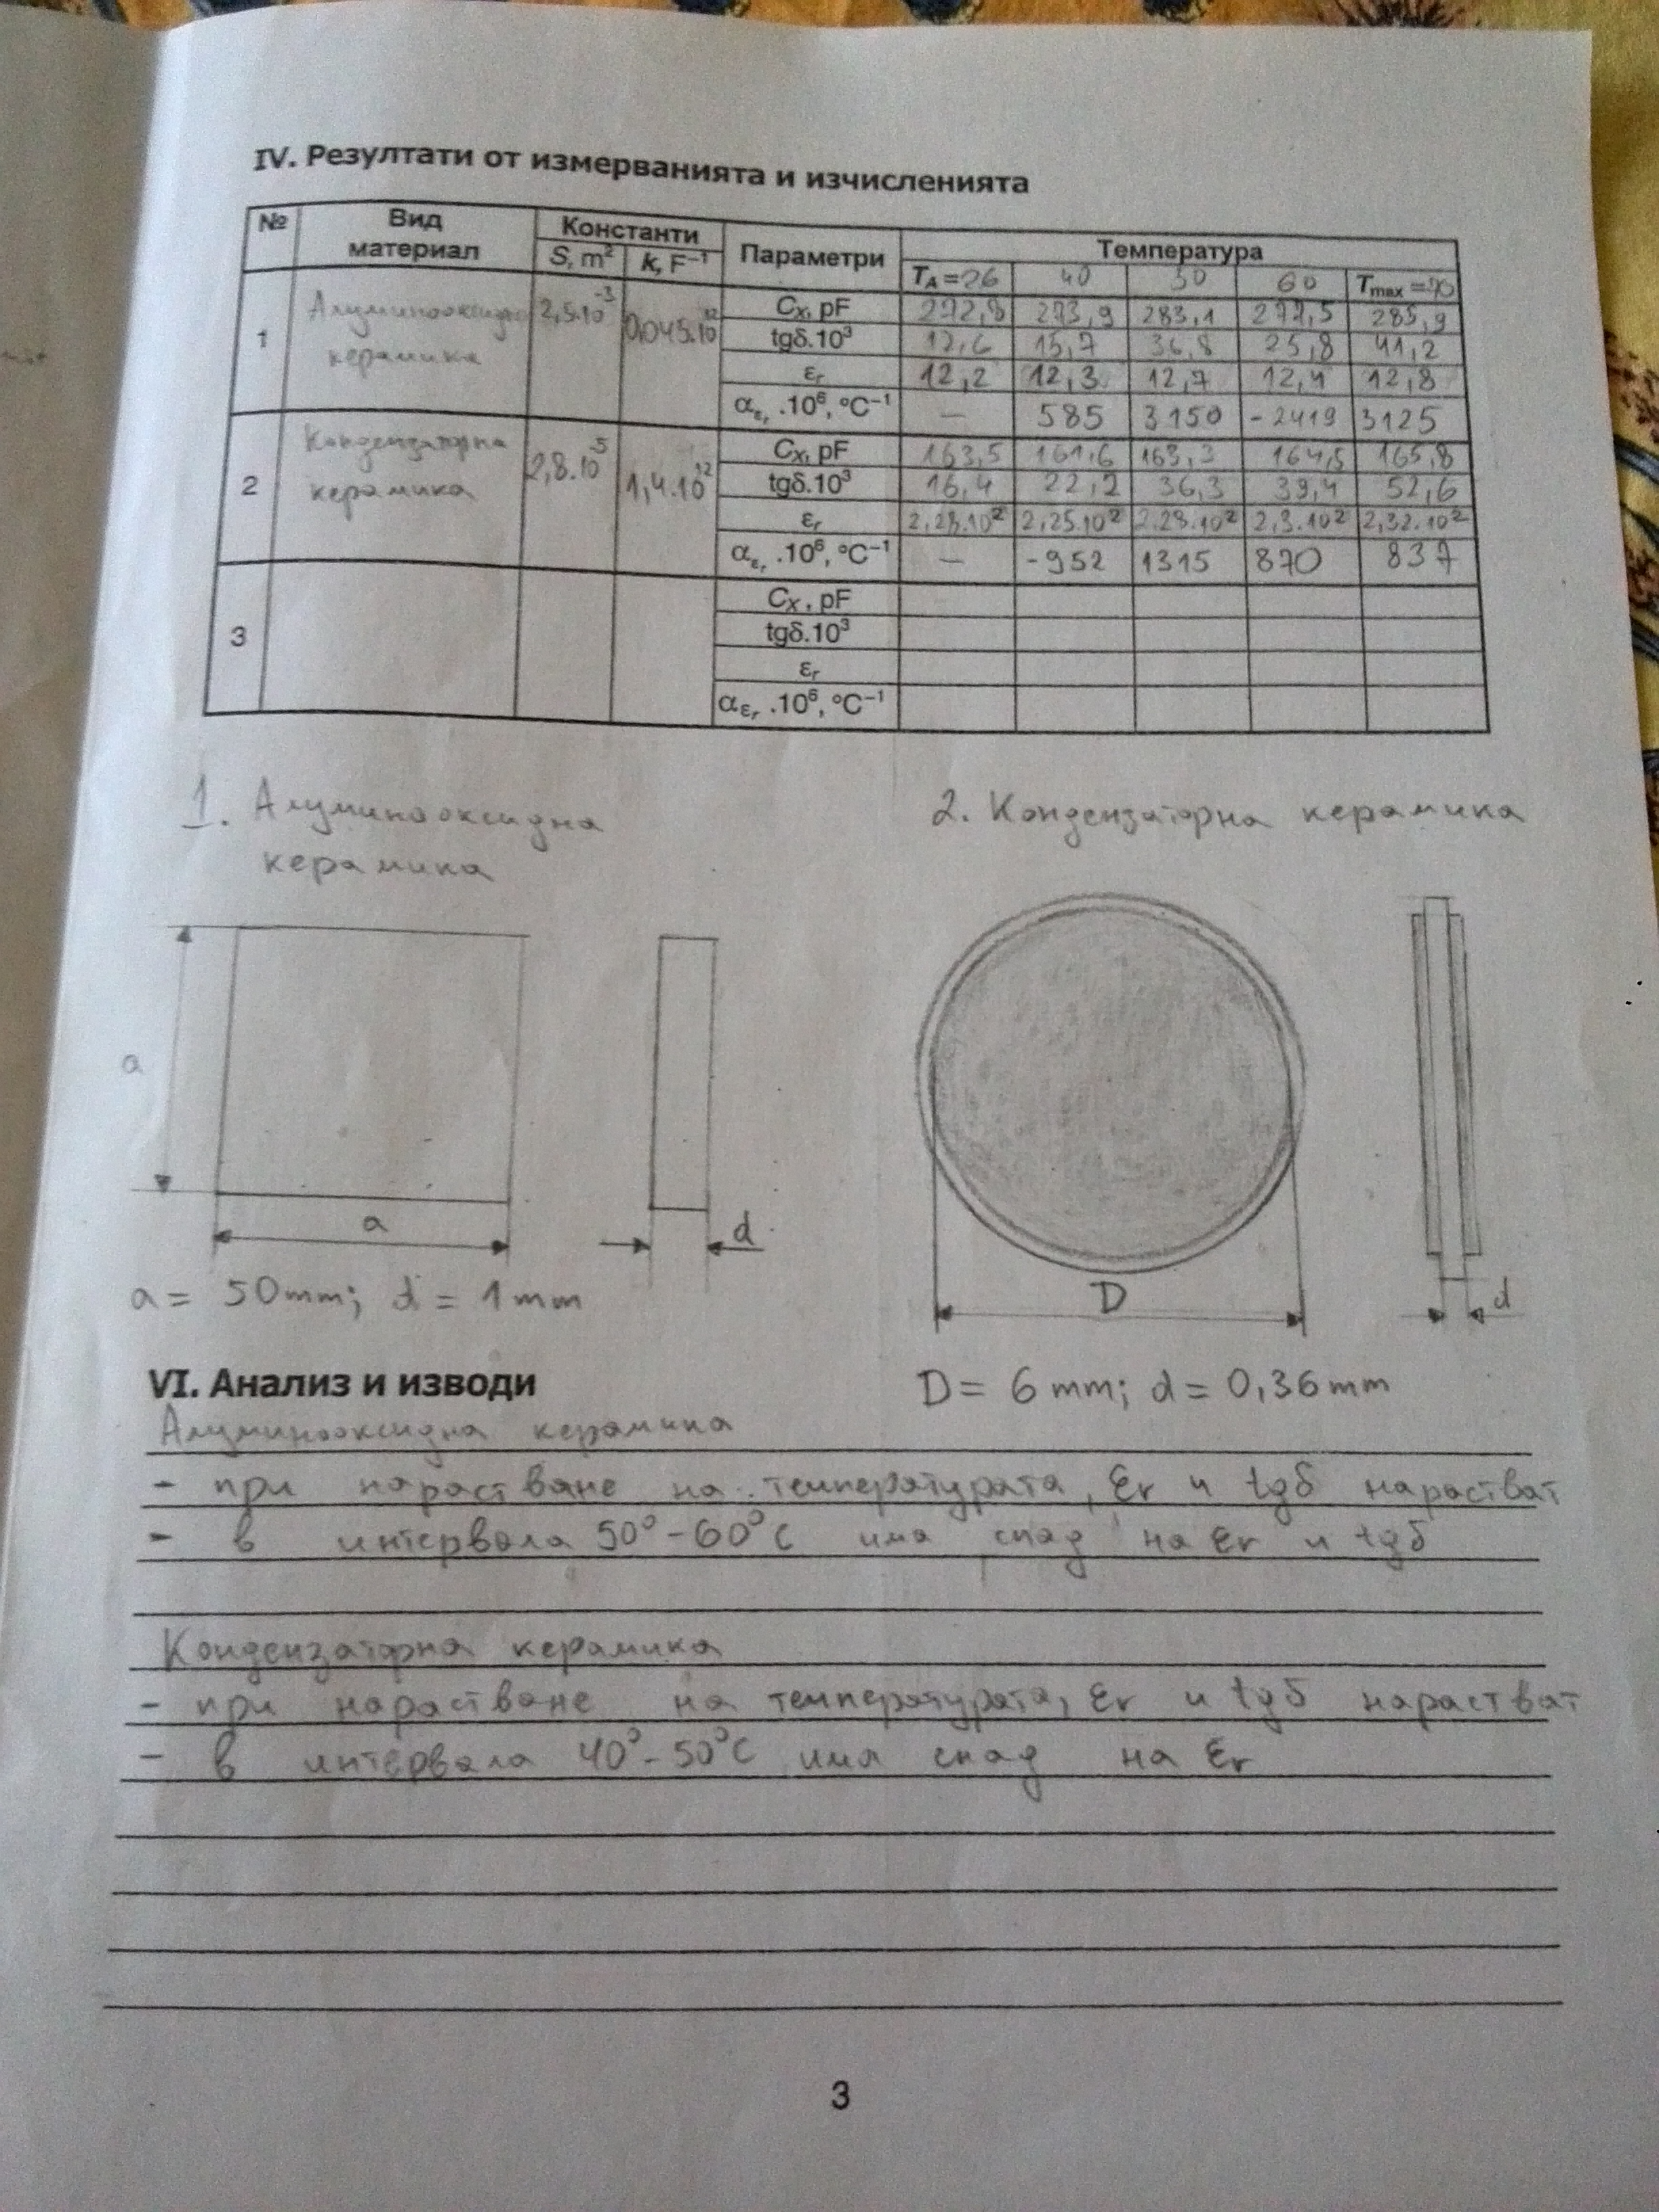 IV. Резултати от измерванията и изчисленията
№ Вид материал Константи Параметри Температура
S, m² k, F⁻¹ T_A = 26 40 50 60 T_max = 70
1 Алуминооксидна керамика 2,5.10⁻³ 0,045.10¹² C_X, pF 272,8 273,9 283,1 277,5 285,9
tgδ.10³ 12,6 15,7 36,8 25,8 41,2
ε_r 12,2 12,3 12,7 12,4 12,8
α_εr .10⁶, °C⁻¹ — 585 3150 -2419 3125
2 Кондензаторна керамика 2,8.10⁻⁵ 1,4.10¹² C_X, pF 163,5 161,6 163,3 164,5 165,8
tgδ.10³ 16,4 22,2 36,3 39,4 52,6
ε_r 2,28.10² 2,25.10² 2.28.10² 2,3.10² 2,32.10²
α_εr .10⁶, °C⁻¹ — -952 1315 870 837
3 C_X, pF
tgδ.10³
ε_r
α_εr .10⁶, °C⁻¹
1. Алуминооксидна
керамика
2. Кондензаторна керамика
a
a
d
a = 50mm; d = 1mm
D
d
D = 6 mm; d = 0,36mm
VI. Анализ и изводи
Алуминооксидна керамика
- при нарастване на температурата, εr и tgδ нарастват
- в интервала 50° - 60°C има спад на εr и tgδ
Кондензаторна керамика
- при нарастване на температурата, εr и tgδ нарастват
- в интервала 40° - 50°C има спад на εr
3